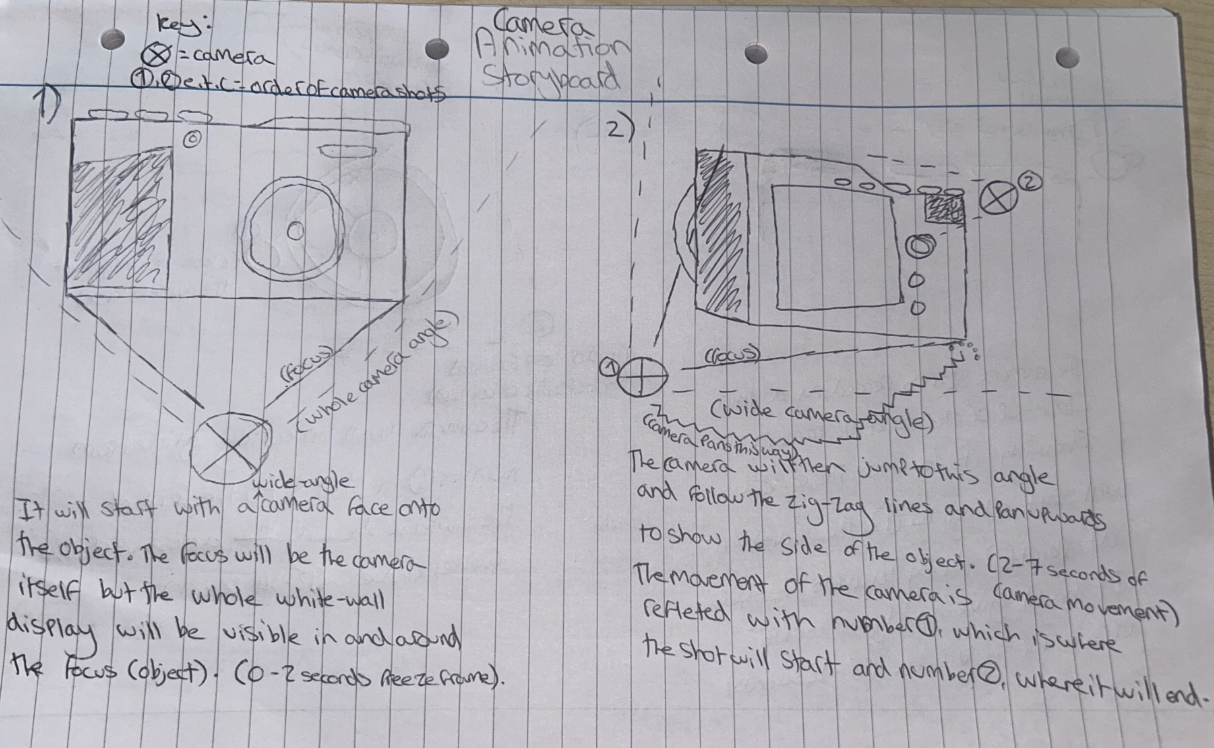 Camera
Animation
Storyboard
Key:
ⓧ = camera
①,② e.t.c = order of camera shots
1)
(focus)
(whole camera angle)
wide-angle
It will start with a ↑ camera face onto
the object. The focus will be the camera
itself but the whole white-wall
display will be visible in and around
the focus (object). (0-2 seconds freeze frame).
2)
②
①
(focus)
(wide camera angle)
(camera Pans this way)
The camera will then jump to this angle
and follow the zig-zag lines and Pan upwards
to show the side of the object. (2-7 seconds of
The movement of the camera is camera movement)
refleted with number ①, which is where
the shot will start and number ②, where it will end.